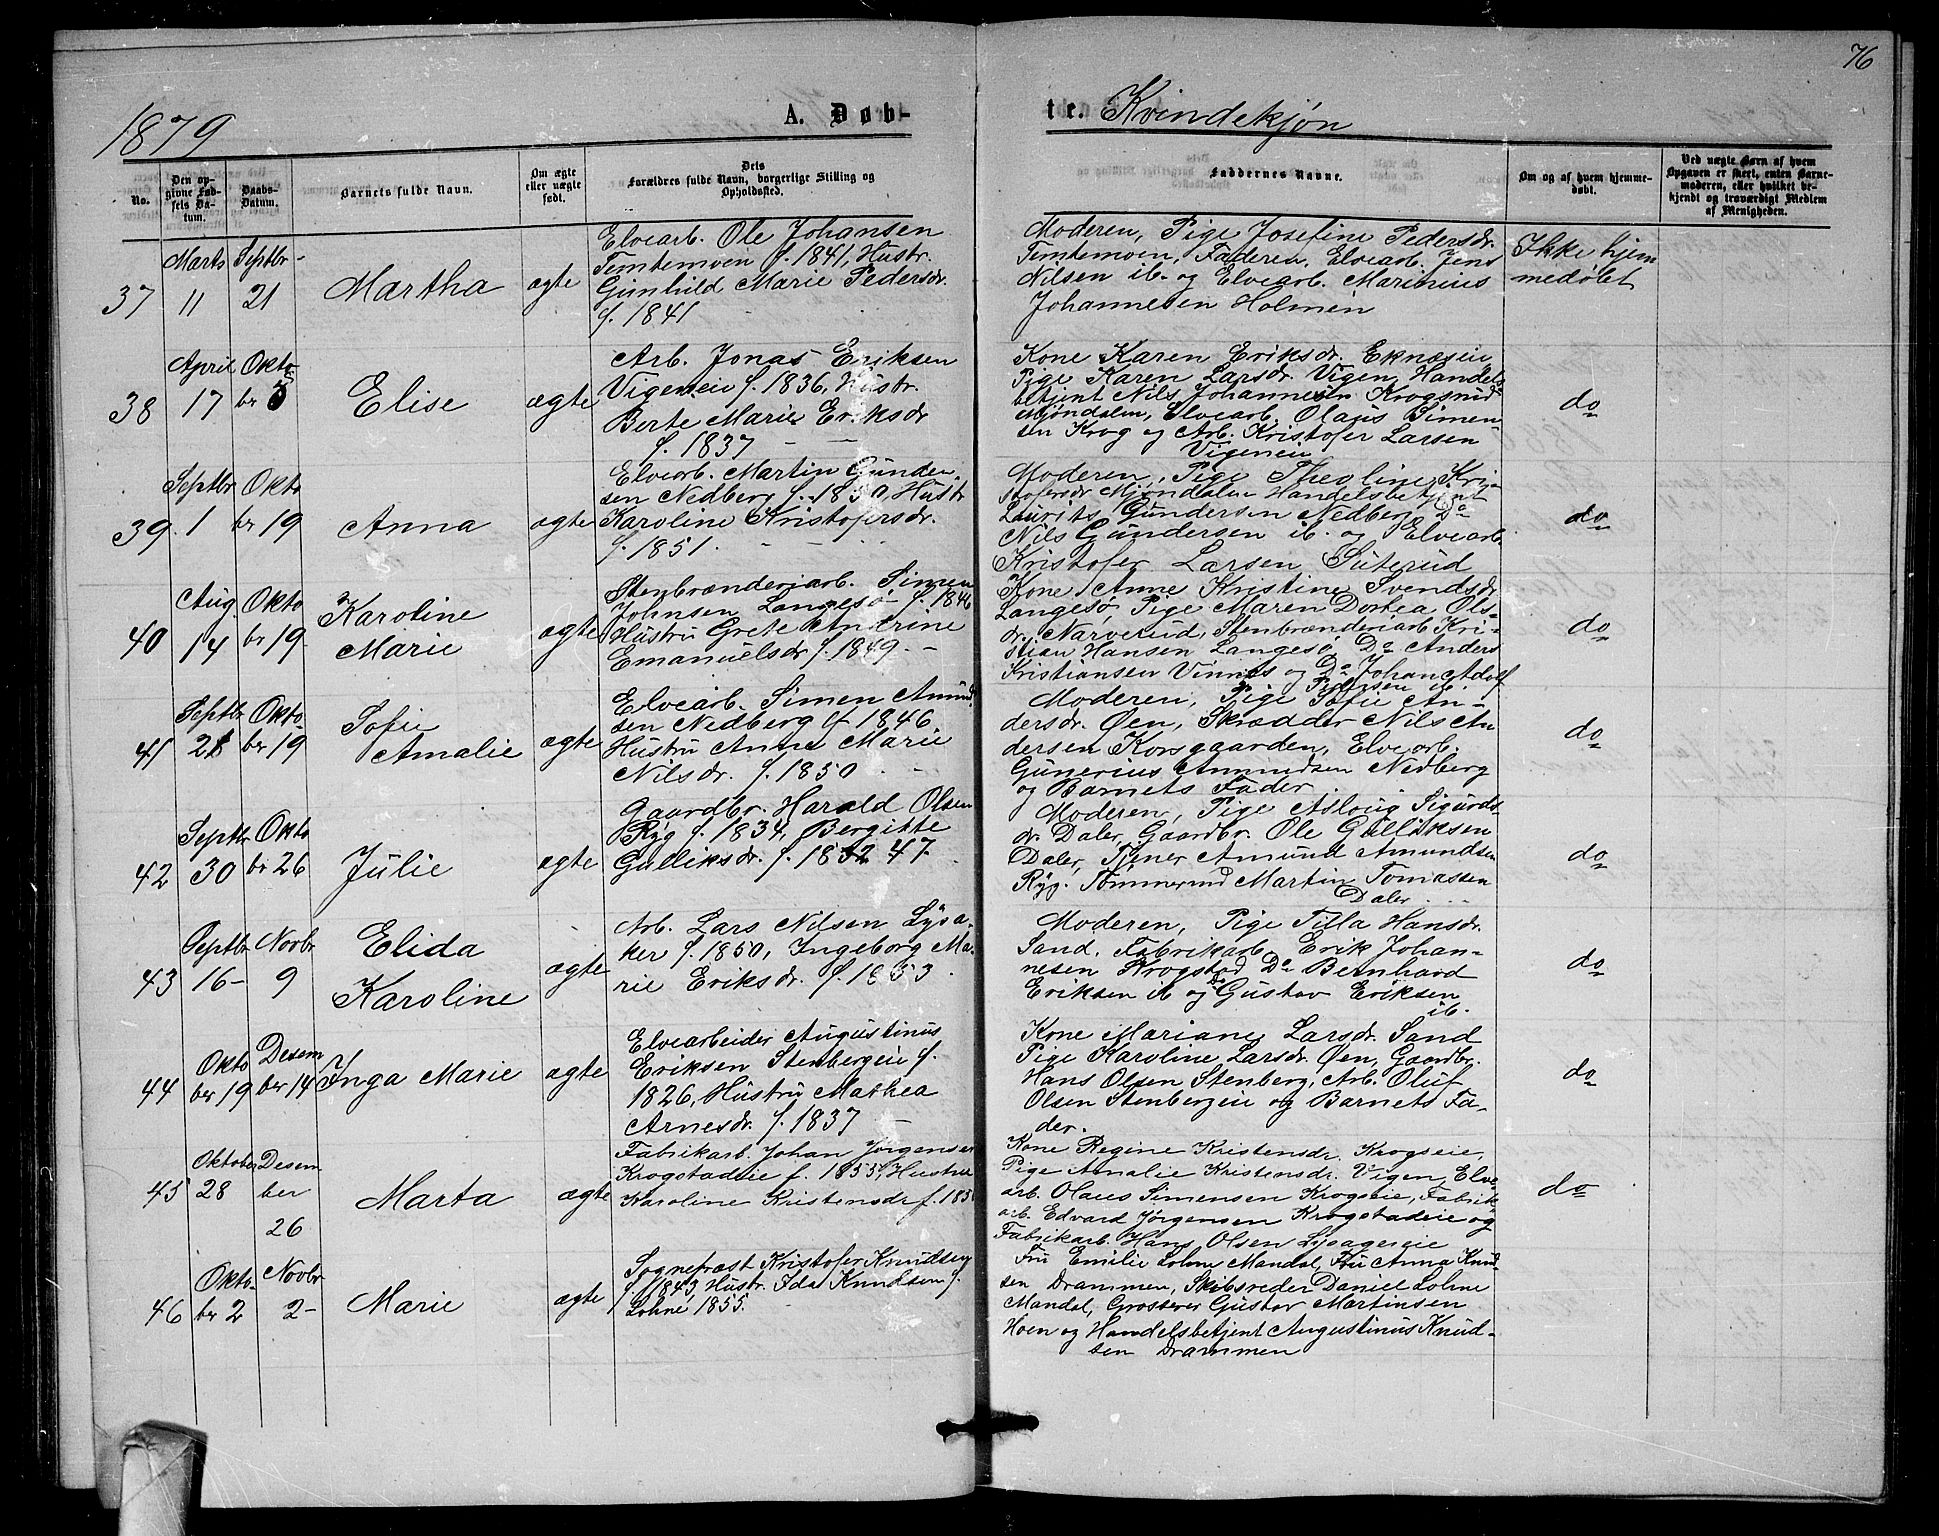 76
1879
A. Døb-
te. Kvindekjøn
No.
Den op-
givne Fød-
sels Da-
tum.
Daabs-
Datum.
Barnets fulde Navn.
Om ægte
eller uægte
født.
Dets
Forældres fulde Navn, borgerlige Stilling og
Opholdssted.
Faddernes Navne.
Om og af hvem hjemme-
døbt.
Ved uægte Barn af hvem
Opgaven er skeet, enten Barne-
moderen, eller hvilket be-
kjendt og troværdigt Medlem
af Menigheden.
37
Marts
11
Septbr
21
Martha
ægte
Elvearb. Ole Johansen
Temtemoen f. 1841, Hustr.
Gunhild Marie Pedersdr.
f. 1841
Moderen, Pige Josefine Pedersdr.
Temtemoen, Faderen, Elvearb. Jens
Nilsen ib. og Elvearb. Marinius
Johannesen Holmen
Ikke hjem
medøbt
38
April
17
Okto
br 5
Elise
ægte
Arb. Jonas Eriksen
Vigeneie f. 1836, Hustr.
Berte Marie Eriksdr
f. 1837
Kone Karen Eriksdr. Eknæseie
Pige Karen Larsdr. Vigen, Handels
betjent Nils Johannesen Krogsrud
Mjøndalen, Elvearb. Olaus Simen-
sen Krog og Arb. Kristofer Larsen
Vigeneie
do
39.
Septbr
1
Okto
br 19
Anna
ægte
Elvearb. Martin Gunder
sen Nedberg f. 1850, Hustr
Karoline Kristofersdr.
f. 1851.
Moderen, Pige Theoline Kri-
stofersdr Mjøndalen Handelsbetjent
Laurits Gundersen Nedberg Do
Nils Gundersen ib. og Elvearb.
Kristofer Larsen Suterud
do
40
Aug
14
Okto
br 19
Karoline
Marie
ægte
Stenbrænderiarb. Simen
Johnsen Langesø f. 1846
Hustru Grete Andrine
Emanuelsdr f. 1849.
Kone Anne Kristine Svendsdr
Langesø, Pige Maren Dortea Ols-
dr. Narverud, Stenbrænderiarb Kri-
stian Hansen Langesø Do Anders
Kristiansen Vinnes og Do Johan Adolf
Pettersen ib.
41
Septbr
21
Okto
br 19
Sofie
Amalie
ægte
Elvearb. Simen Amund
sen Nedberg f 1846.
Hustru Anne Marie
Nilsdr. f. 1850
Moderen, Pige Sofie An-
dersdr. Øen, Skrædder Nils An
dersen Korsgaarden, Elvearb.
Gunerius Amundsen Nedberg
og Barnets Fader.
do
42
Septbr
30
Okto
br 26
Julie
ægte
Gaardbr. Harald Olsen
Ryg f. 1834, Bergitte
Gulliksdr. f. 1852 47.
Moderen, Pige Aslaug Sigurds
dr. Daler, Gaardbr. Ole Gulliksen
Daler, Tjener Amund Amundsen
Ryg. Tømmermd Martin Tomassen
Daler
do
43
Septbr
16
Novbr
9
Elida
Karoline
ægte
Arb. Lars Nilsen Lysa-
ker f. 1850, Ingeborg Ma-
rie Eriksdr. f. 1853
Moderen, Pige Tilla Hansdr.
Sand, Fabrikarb. Erik Johan-
nesen Krogstad Do Bernhard
Eriksen ib og Do Gustav Eriksen
ib.
do
44
Okto
ber 19
Desem
ber 14
Inga Marie
ægte
Elvearbeider Augustinus
Eriksen Stenbergeie f.
1826, Hustru Mathea
Arnesdr. f. 1837
Kone Mariane Larsdr. Sand
Pige Karoline Larsdr. Øen, Gaardbr.
Hans Olsen Stenberg, Arb. Oluf
Olsen Stenbergeie og Barnets Fa-
der.
do
45
Oktober
28
Desem
ber
26
Marta
ægte
Fabrikarb. Johan Jørgensen
Krogstadeie f. 1855, Hustru
Karoline Kristensdr f. 185
Kone Regine Kristensdr. Krogseie,
Pige Amalie Kristensdr. Vigen, Elve-
arb. Olaus Simensen Krogseie, Fabrik
arb. Edvard Jørgensen Krogstadeie og
Fabrikarb. Hans Olsen Lysagereie
do
46
Okto-
ber 2
Novbr
2
Marie
ægte
Sognepræst Kristofer Knudsen
f. 1843, Hustr. Ida Knudsen f.
Lohne 1855.
Fru Emilie Lohne Mandal, Fru Anna Knud
sen Drammen, Skibsreder Daniel Lohne
Mandal, Grosserer Gustav Martinsen
Hoen og Handelsbetjent Augustinus Knud-
sen Drammen